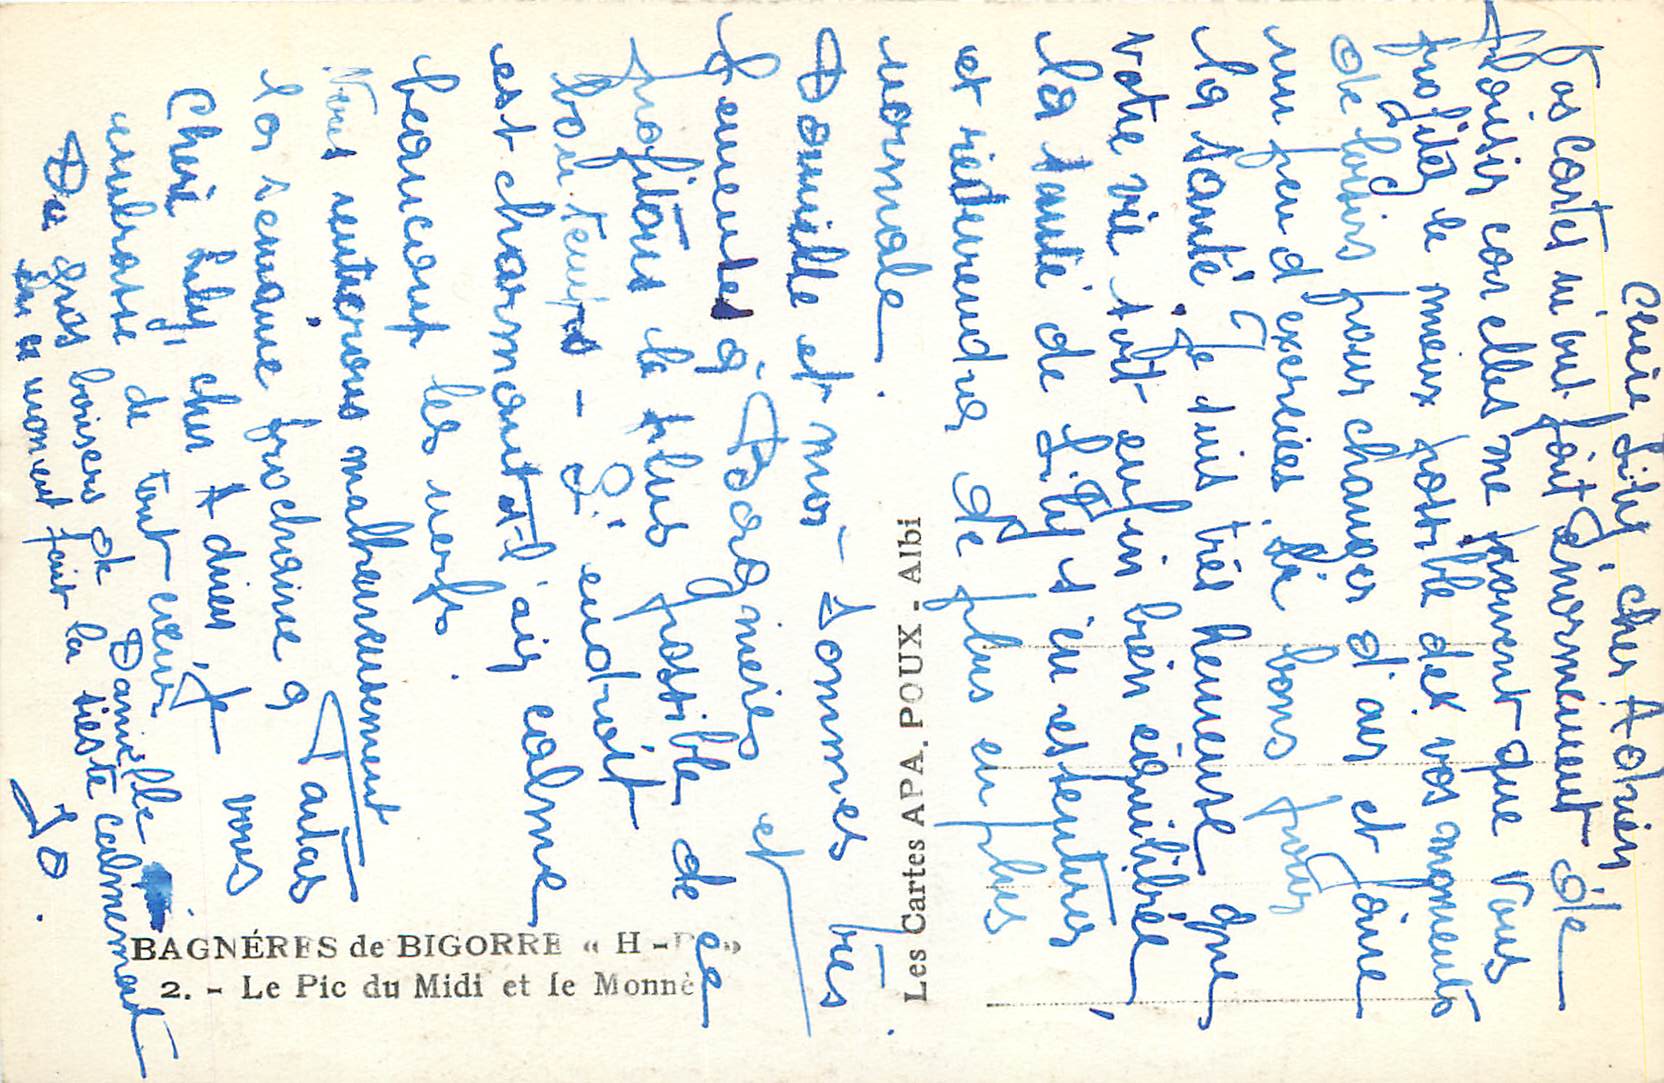 Chère Lily, cher Adrien
Vos cartes m'ont fait énormément de
plaisir car elles me prouvent que vous
profitez le mieux possible de vos moments
de loisirs pour changer d'air et faire
un peu d'exercices là bons pour
la santé. Je suis très heureuse que
votre vie soit enfin bien équilibrée,
la santé de Lily s'en ressentira
et redeviendra de plus en plus
normale.
Danielle et moi - sommes très
heureuses à Bagnères et
profitons le plus possible de ce
beau temps - L'endroit
est charmant et l'air calme
beaucoup les nerfs.
Nous rentrerons malheureusement
la semaine prochaine à Tautas
Chère Lily, cher Adrien, je vous
embrasse de tout cœur.
De gros baisers de Danielle
qui en ce moment fait la sieste calmement
Jo.
BAGNÉRES de BIGORRE « H - P »
2. - Le Pic du Midi et le Monné
Les Cartes APA. POUX - Albi